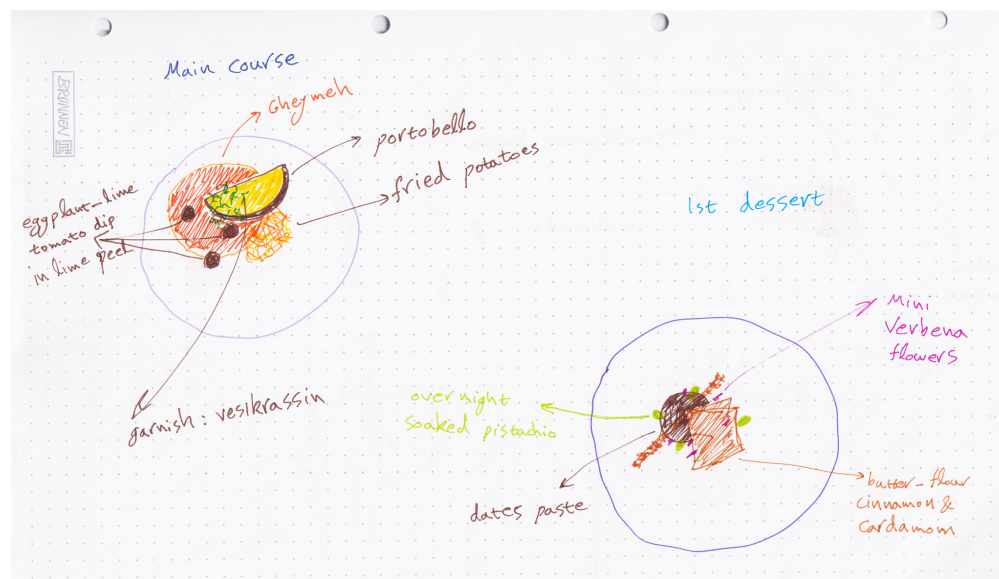 Main course
BRUNNEN
Gheymeh
portobello
fried potatoes
eggplant-lime
tomato dip
in lime peel
garnish: vesikrassin
1st dessert
Mini
Verbena
flowers
overnight
soaked pistachio
dates paste
butter-flour
cinnamon &
cardamom